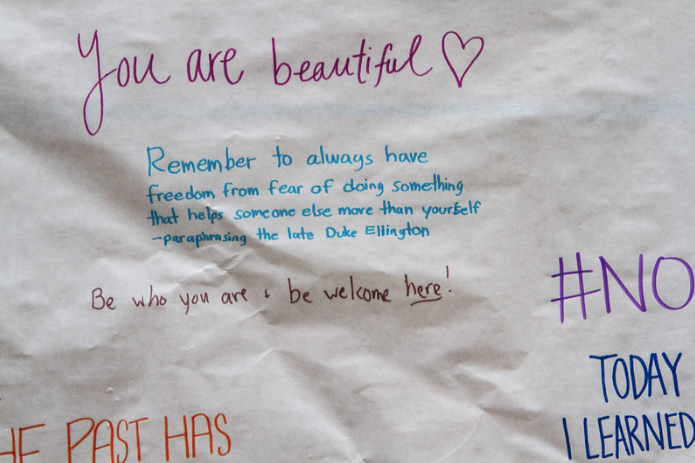 You are beautiful ♡
Remember to always have
freedom from fear of doing something
that helps someone else more than yourself
-paraphrasing the late Duke Ellington
Be who you are & be welcome here!
#NO
TODAY
I LEARNED
HE PAST HAS